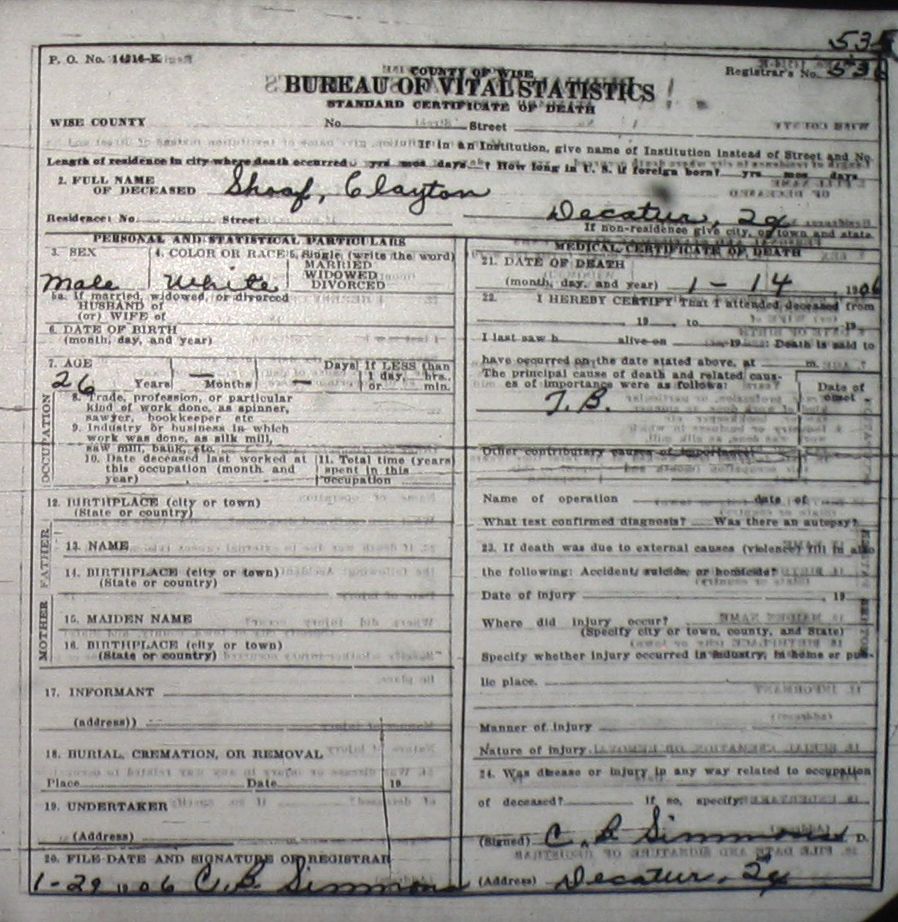 535
P. O. No. 14216-K
COUNTY OF WISE
Registrar's No. 536
BUREAU OF VITAL STATISTICS
STANDARD CERTIFICATE OF DEATH
WISE COUNTY No. Street
If in an Institution, give name of Institution instead of Street and No.
Length of residence in city where death occurred yrs mos days ? How long in U. S. if foreign born? yrs mos days
2. FULL NAME
OF DECEASED Shoaf, Clayton
Residence: No. Street Decatur, Tx
If non-residence give city, or town and state
PERSONAL AND STATISTICAL PARTICULARS
3. SEX 4. COLOR OR RACE 5. Single (write the word)
MARRIED
WIDOWED
DIVORCED
Male White
5a. If married, widowed, or divorced
HUSBAND of
(or) WIFE of
6. DATE OF BIRTH
(month, day, and year)
7. AGE Days If LESS than
1 day, hrs.
26 Years — Months — or min.
OCCUPATION
8. Trade, profession, or particular
kind of work done, as spinner,
sawyer, bookkeeper etc
9. Industry or business in which
work was done, as silk mill,
saw mill, bank, etc.
10. Date deceased last worked at
this occupation (month and
year)
11. Total time (years)
spent in this
occupation
12. BIRTHPLACE (city or town)
(State or country)
FATHER
13. NAME
14. BIRTHPLACE (city or town)
(State or country)
MOTHER
15. MAIDEN NAME
16. BIRTHPLACE (city or town)
(State or country)
17. INFORMANT
(address))
18. BURIAL, CREMATION, OR REMOVAL
Place Date 19
19. UNDERTAKER
(Address)
20. FILE DATE AND SIGNATURE OR REGISTRAR
1-29 1906 C. B. Simmons
MEDICAL CERTIFICATE OF DEATH
21. DATE OF DEATH
(month, day, and year) 1-14 1906
22. I HEREBY CERTIFY That I attended deceased from
19 , to 19
I last saw h alive on 19 Death is said to
have occurred on the date stated above, at m.
The principal cause of death and related caus-
es of importance were as follows:
Date of
onset
T. B.
Other contributary causes of importance:
Name of operation date of
What test confirmed diagnosis? Was there an autopsy?
23. If death was due to external causes (violence) fill in also
the following: Accident, suicide, or homicide?
Date of injury 19
Where did injury occur?
(Specify city or town, county, and State)
Specify whether injury occurred in industry, in home or pub-
lic place.
Manner of injury
Nature of injury
24. Was disease or injury in any way related to occupation
of deceased? If so, specify
(Signed) C. B. Simmons D.
(Address) Decatur, Tx